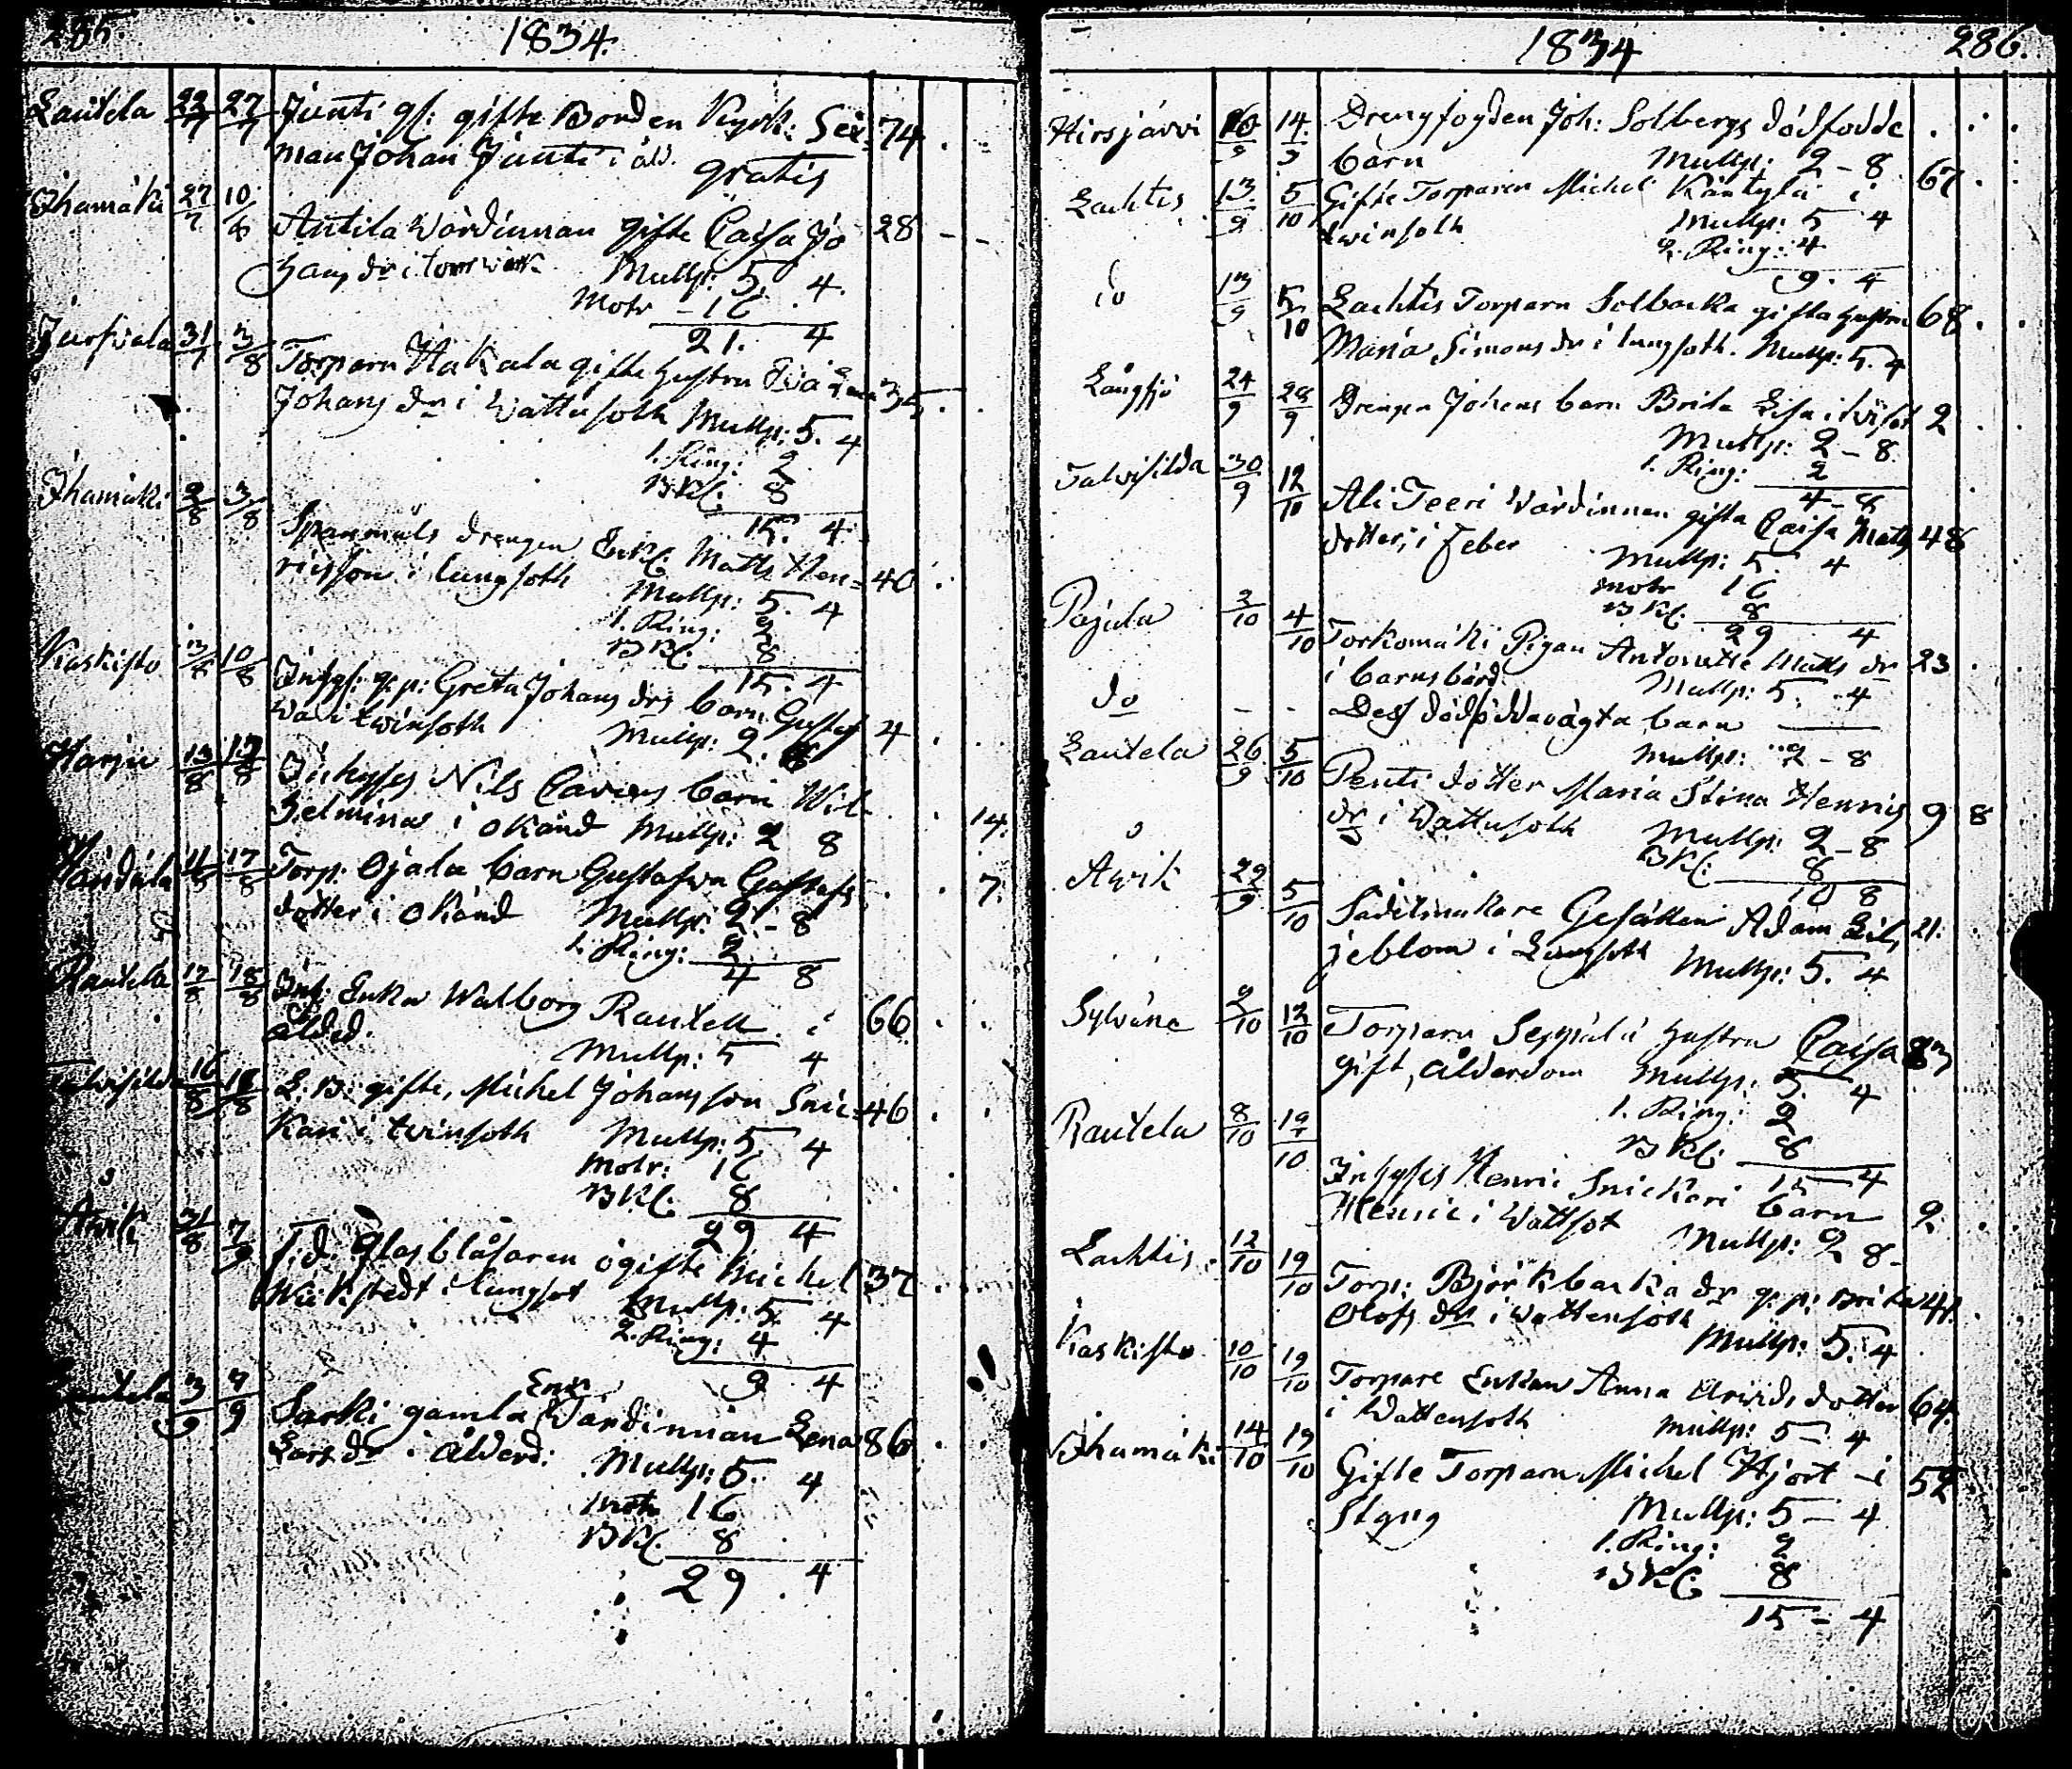 285. 1834.
Lautela 22/7 27/7 Junti gl: gifte Bonden Kyrk: Sex= 74
man Johan Junti i åld. gratis
Jhamäki 27/7 10/8 Antila Wärdinnan gifte Caisa Jo 28
hans dr i Mullp: 5. 4.
Motr - 16
21. 4
31/7 3/8 Torparn Hakala gifte hustru Eva Lena 35
Johans dr i Wattusoth Mullp: 5. 4
1. Ring: 2
B.Kl: 8
15. 4.
Jhamäki 2/8 3/8 Spanmåls drengen Enkl: Matts Hen= 40
ricsson i lungsoth Mullp: 5. 4
1. Ring: 2
B.Kl. 8
15. 4
Kaskisto 3/8 10/8 Inhys: q: p: Greta Johans drs barn Gustaf 4
i twinsoth Mullp: 2. 8
Harju 13/8 17/8 Inhyses Nils Caviens barn Wil 14.
helmina i okänd Mullp: 2 8
17/8 Torp: Ojala barn Gustafwa Gustafs 7.
dotter i okänd Mullp: 2 - 8
1. Ring: 2
4 8
Rautela 17/8 18/8 Inh: Enka Walborg Rautell i 66
ålded. Mullp: 5 4
16/8 18/8 L: B: gifte, Michel Johansson Snic= 46
kari i twinsoth Mullp: 5 4
Motr: 16
B.Kl. 8
29 4
Åvik 31/8 7/9 f.d. Glasblåsaren ogifte Michel 37
Wickstedt i lungsot Mullp: 5. 4
2. Ring: 4
9 4
Lautela 3/9 7/9 Sarki gamla Enk Wärdinnan Lena 86
Lars dr i ålderd: Mullp: 5. 4
Motr 16
B.Kl. 8
29. 4
1834 286.
Hirsjärvi 10/9 14/9 Drengfogden Joh: Solbergs dödfödde
barn Mullp: 2 - 8
Lachtis 13/9 5/10 Gifte Torparen Michel Käntylä i 67
twinsoth Mullp: 5 4
2. Ring: 4
9. 4
do 13/9 5/10 Lachtis Torparn Solbacka gifta hustru 68
Maria Simons dr i lungsoth. Mullp: 5. 4
Långsjö 24/9 28/9 Drengen Johans barn Brita Lisa i 2
Mullp: 2 - 8.
1. Ring: 2
4 - 8
Talvisilda 30/9 12/10 Ali Teeri Wärdinnan gifta Caisa Mats 48
dotter, i feber Mullp: 5. 4
Motr 16
B.Kl. 8
29 4
Pajula 2/10 4/10 Torkomäki Pigan Antonette Matts dr 23
i barnsbörd. Mullp: 5. 4
do - - Dess barn
Mullp: 2 - 8
Lautela 26/9 5/10 Penti dotter Maria Stina Henrics 9 8
dr i Wattusoth Mullp: 2 - 8
B.Kl. 8
10 8
Åvik 29/9 5/10 Sadelmakare Gesällen Adam Lil, 21.
jeblom i Lungsoth Mullp: 5. 4
Sylväne 9/10 12/10 Torparn Seppälä hustru Caisa 83
gift, ålderdom Mullp: 5. 4
1. Ring: 2
B.Kl. 8
15 4
Rautela 8/10 19/10 Inhyses Henric Snickari barn 2.
Henric i Wattsot Mullp: 2 8.
Lachtis 12/10 19/10 Torp: Björkbacka dr q: p: Brita 41.
Olofs dr i Wattensoth Mullp: 5. 4
Kaskisto 10/10 19/10 Torpare Enkan Anna Arvids dotter 64.
i Wattensoth Mullp: 5. 4
Jhamäki 14/10 19/10 Gifte Torparn Michel Hjort i 52
Styng Mullp: 5 - 4
1. Ring: 2
B.Kl. 8
15 - 4